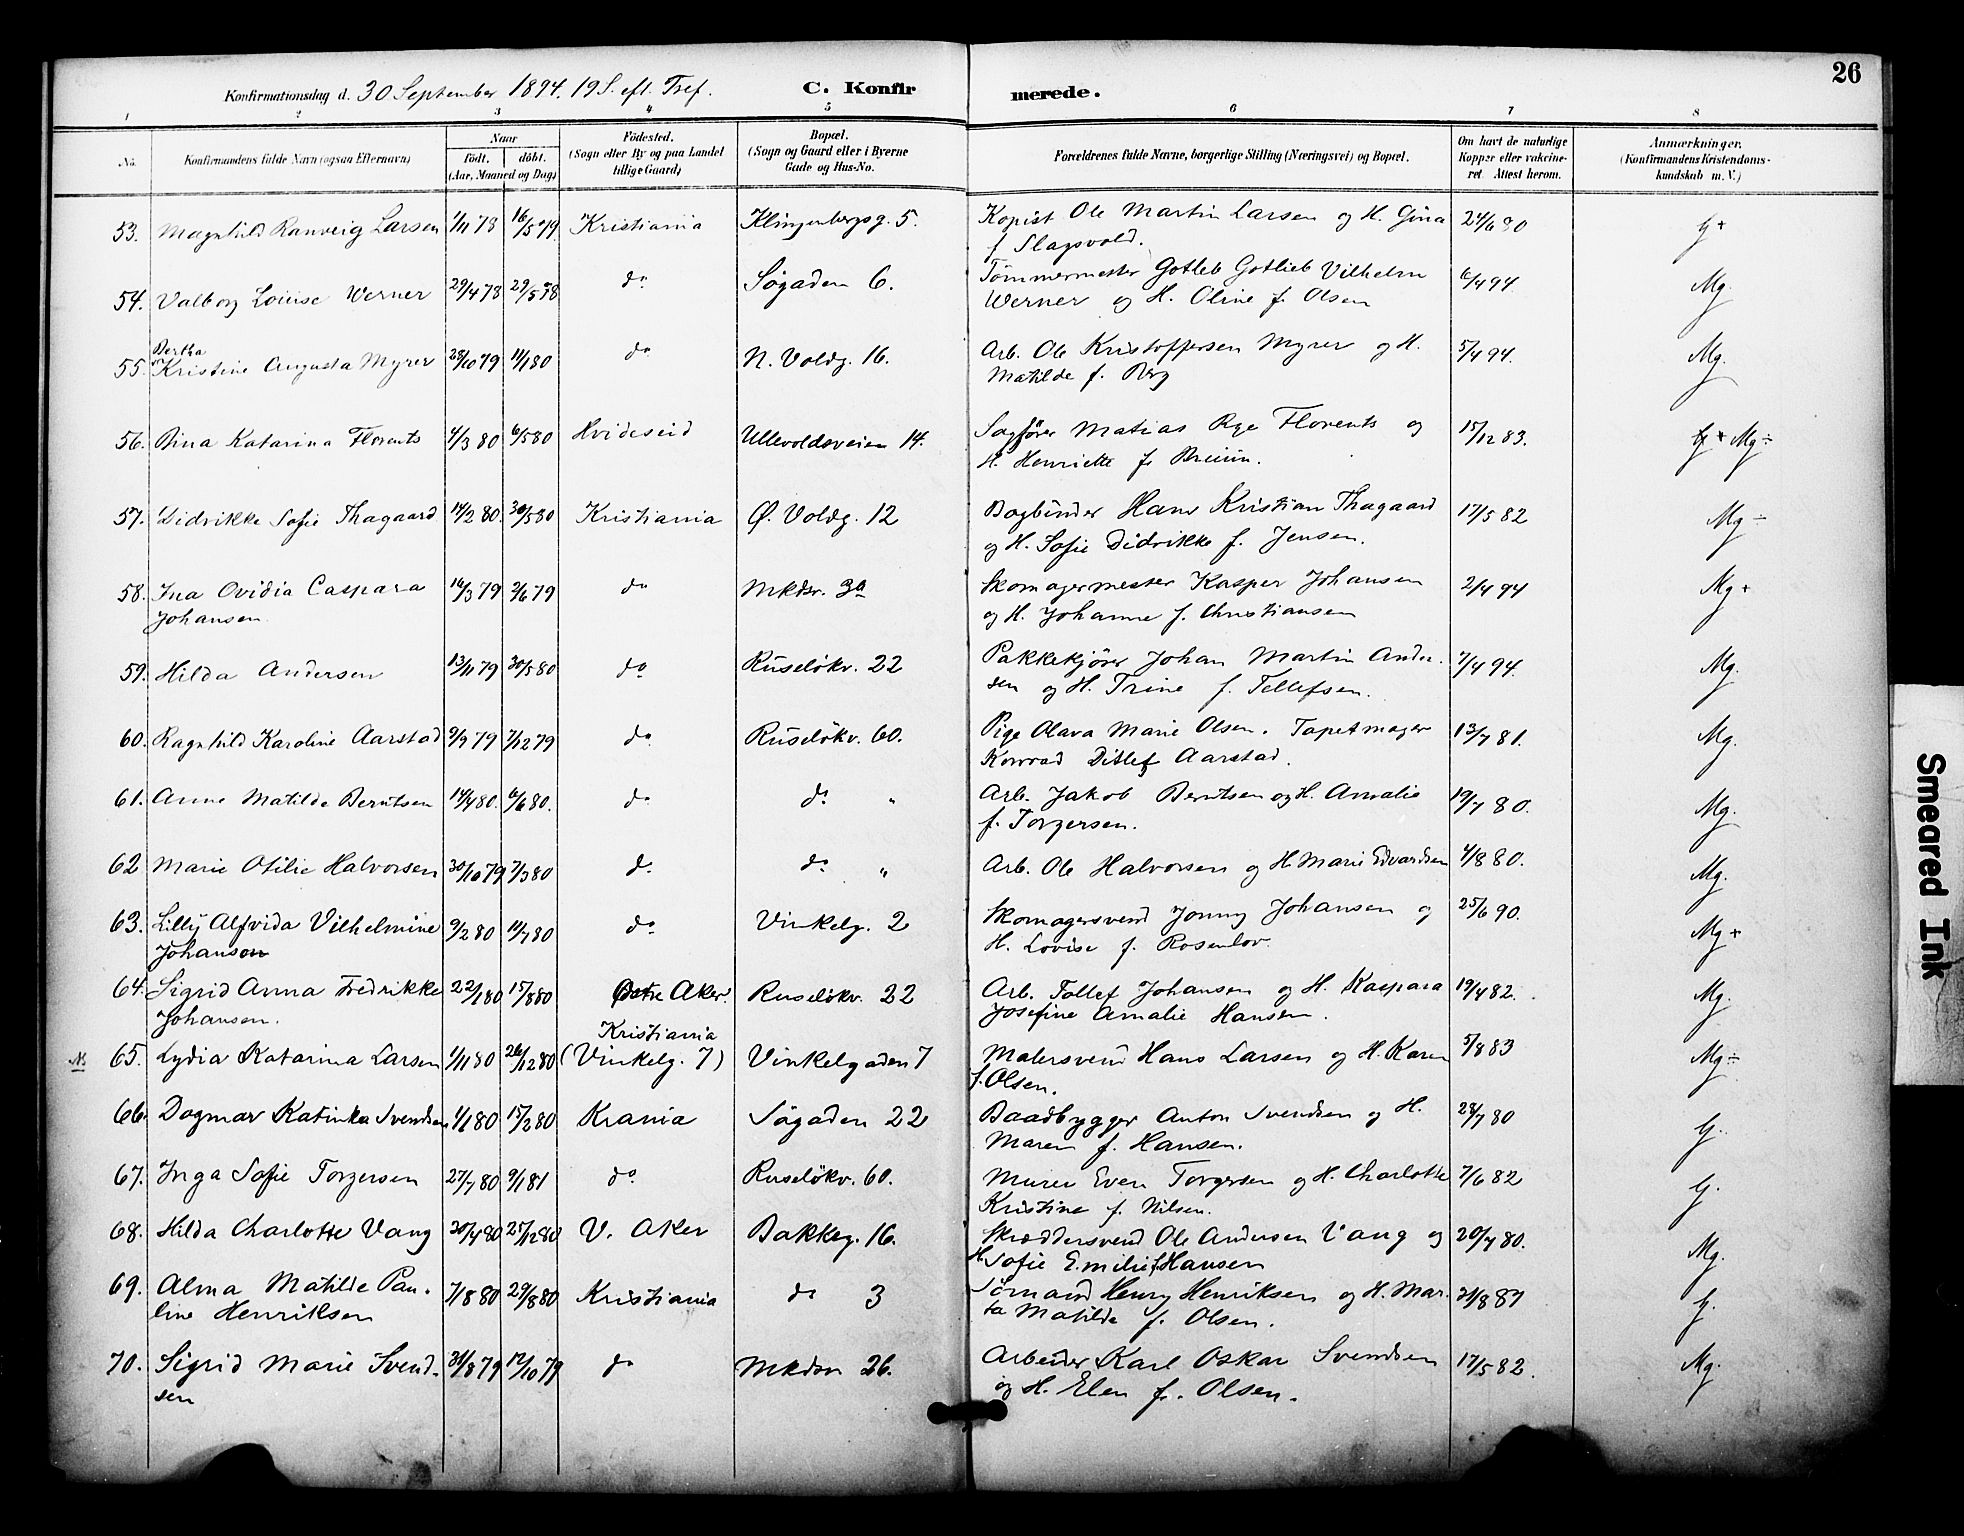 26
Konfirmationsdag d. 30 September 1894. 19 S. eft. Tref. C. Konfirmerede.
1 2 3 4 5 6 7 8
No. Konfirmandens fulde Navn (ogsaa Efternavn) Naar födt. döbt. (Aar, Maaned og Dag) Födested. (Sogn eller By og paa Landet tillige Gaard) Bopæl. (Sogn og Gaard eller i Byerne Gade og Hus-No. Forældrenes fulde Navne, borgerlige Stilling (Næringsvei) og Bopæl. Om havt de naturlige Kopper eller vakcineret. Attest herom. Anmærkninger. (Konfirmandens Kristendomskundskab m. V.)
53. Magnhild Ranveig Larsen 1/11 78 16/5 79 Kristiania Klingenbergsg. 5. Kopist Ole Martin Larsen og H. Gina 24/6 80 G+
f. Slagsvold.
54. Valborg Louise Werner 29/4 78 29/5 78 do Søgaden 6. Tömmermester Gotleb Gotlieb Vilhelm 6/4 94. Mg.
Werner og H. Oline f. Olsen
Bertha
55. Kristine Augusta Myrer 28/10 79 11/1 80 do N. Voldg. 16. Arb. Ole Kristoffersen Myrer og H. 5/4 94. Mg.
Matilde f. Berg
56. Dina Katarina Florents 4/3 80 6/5 80 Hvideseid Ullevoldsveien 14. Sagfører Matias Rye Florents og 15/12 83. G+ Mg÷
H. Henriette f.
57. Didrikke Sofie Thagaard 14/2 80. 30/5 80 Kristiania Ø. Voldg. 12 Bogbinder Hans Kristian Thagaard 17/5 82 Mg÷
og H. Sofie Didrikke f. Jensen.
58. Ina Ovidia Caspara 14/3 79 2/6 79 do Mkdsr. 3a Skomagermester Kasper Johansen 2/4 94 Mg+
Johansen. og H. Johanne f. Christiansen
59. Hilda Andersen 13/11 79 30/5 80 do Ruseløkv. 22 Pakkekjører Johan Martin Ander- 7/4 94. Mg.
sen og H. Trine f. Tellefsen.
60. Ragnhild Karoline Aarstad 9/9 79 7/12 79 do Ruseløkv. 60. Pige Olava Marie Olsen. Tapetmager 13/7 81. Mg.
Konrad Ditlef Aarstad.
61. Anne Matilde Berntsen 14/4 80. 6/6 80. do do " Arb. Jakob Berntsen og H. Amalie 19/7 80. Mg.
f. Torgersen.
62 Marie Otilie Halvorsen 30/10 79 7/3 80 do do " Arb. Ole Halvorsen og H. Marie Edvardsen 4/8 80. Mg.
63. Lilly Alfvida Vilhelmine 9/2 80 11/7 80 do Vinkelg. 2 Skomagersvend Jonny Johansen og 25/6 90. Mg+
Johanson H. Lovise f. Rosenlov.
64. Sigrid Anna Fredrikke 22/1 80 15/8 80 Østre Aker. Ruseløkv. 22 Arb. Tollef Johansen og H. Kaspara 19/4 82. Mg.
Johansen. Josefine Amalie Hansen.
Kristiania
N 65. Lydia Katarina Larsen 1/11 80 26/12 80 (Vinkelg. 7) Vinkelgaden 7 Malersvend Hans Larsen og H. Karen 5/8 83 Mg÷
f. Olsen.
66. Dagmar Katinka Svendsen 1/1 80 15/2 80 Krania Søgaden 22 Baadbygger Anton Svendsen og H. 28/7 80 G.
Maren f. Hansen.
67. Inga Sofie Torgersen 27/7 80 9/1 81 do Ruseløkv. 60. Murer Even Torgersen og H. Charlotte 7/6 82 G.
Kristine f. Nilsen.
68. Hilda Charlotte Vang 20/4 80 25/12 80 V. Aker Bakkeg. 16. Skræddersvend Ole Andersen Vang og 20/7 80. Mg.
H. Sofie Emilie f. Hansen
69. Alma Matilde Pau- 7/8 80 29/8 80 Kristiania do 3 Sømand Henry Henriksen og H. Mar- 31/8 81 G.
line Henriksen ta Matilde f. Olsen.
70. Sigrid Marie Svend- 31/8 79 12/10 79 do Mkdsv 26. Arbeider Karl Oskar Svendsen 17/5 82. Mg.
sen og H. Elen f. Olsen.
Smeared Ink